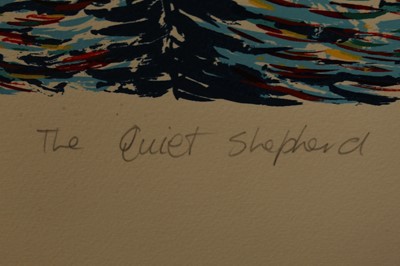 The Quiet Shepherd